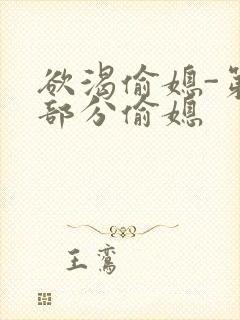 欲渴偷媳-第
部分偷媳
王鸾